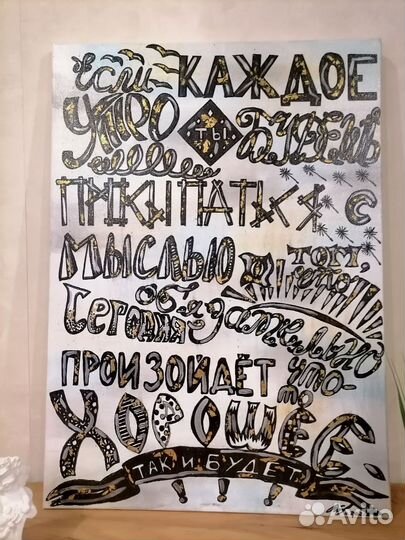 Если КАЖДОЕ
УТРО ТЫ БУДЕШЬ
ПРОСЫПАТЬСЯ С
МЫСЛЬЮ О ТОМ, ЧТО
Сегодня обязательно
ПРОИЗОЙДЁТ что-то
ХОРОШЕЕ
ТАК И БУДЕТ
!!!
Avito